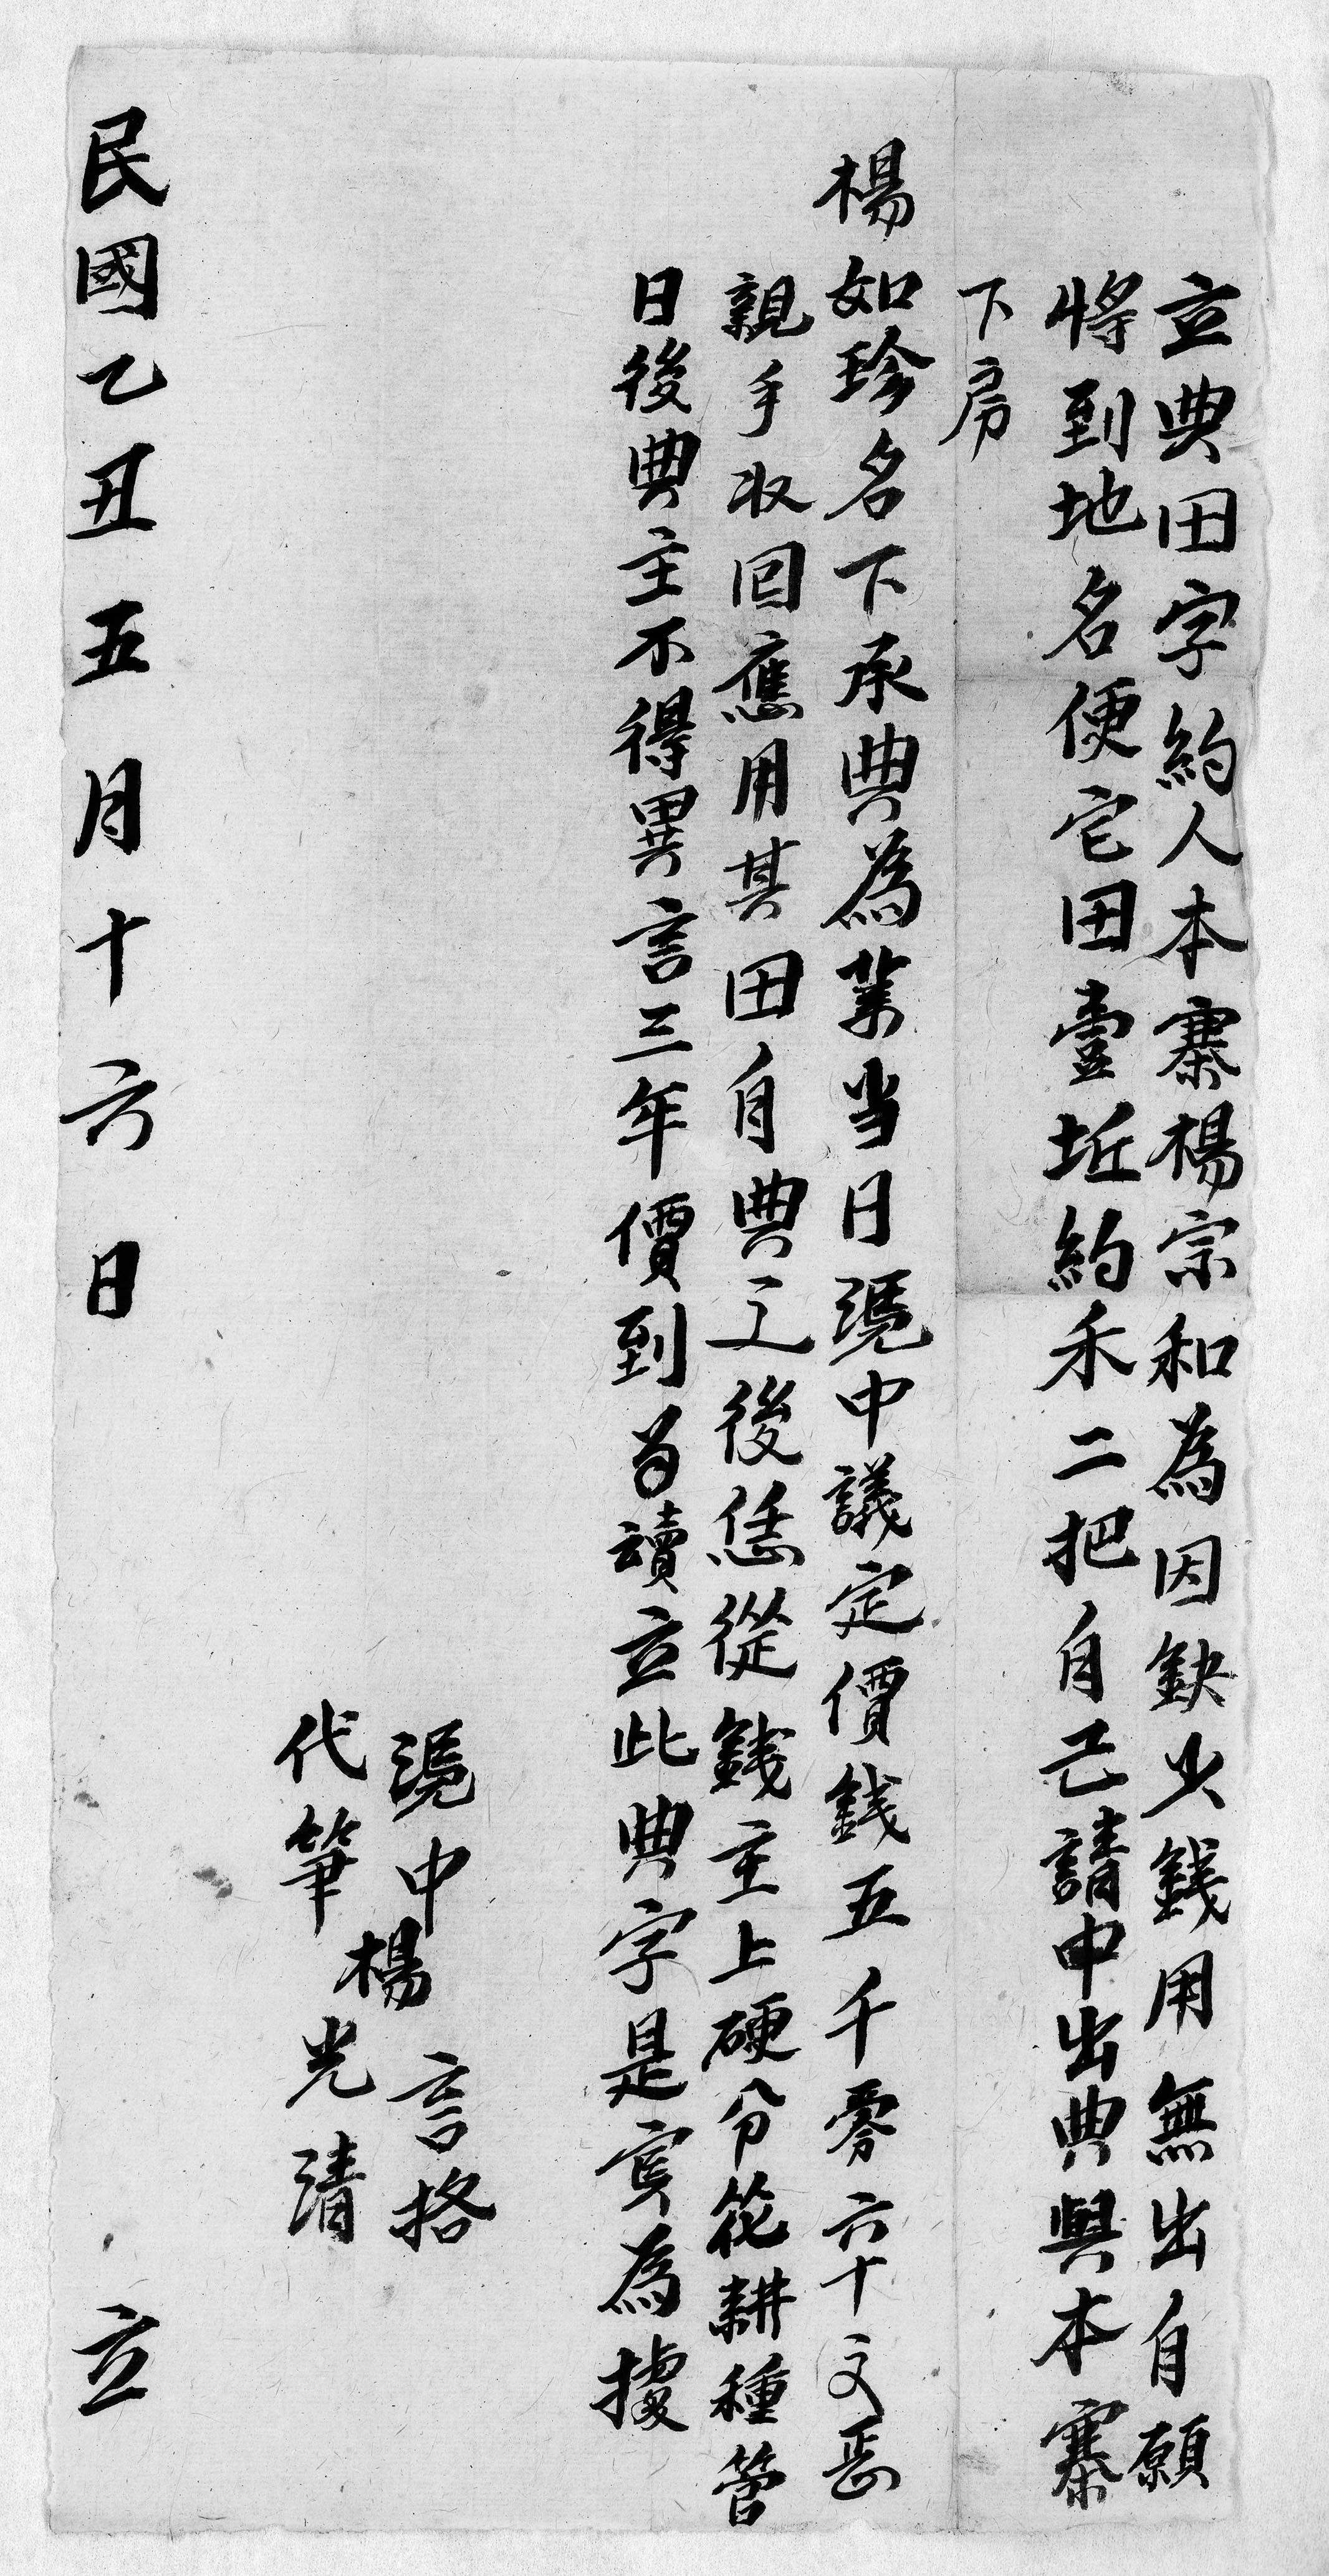 立典田字約人本寨楊宗和為因缺少錢用無出自願
將到地名便它田壹坵約禾二把自己請中出典與本寨
下房
楊如珍名下承典為業当日凴中議定價錢五千零六十文
親手收回應用其田自典之後恁從錢主上硬分花耕種管
日後典主不得異言三年價到 讀立此典字是實為據
凴中 言格
楊
代筆 光清
民國乙丑五月十六日 立